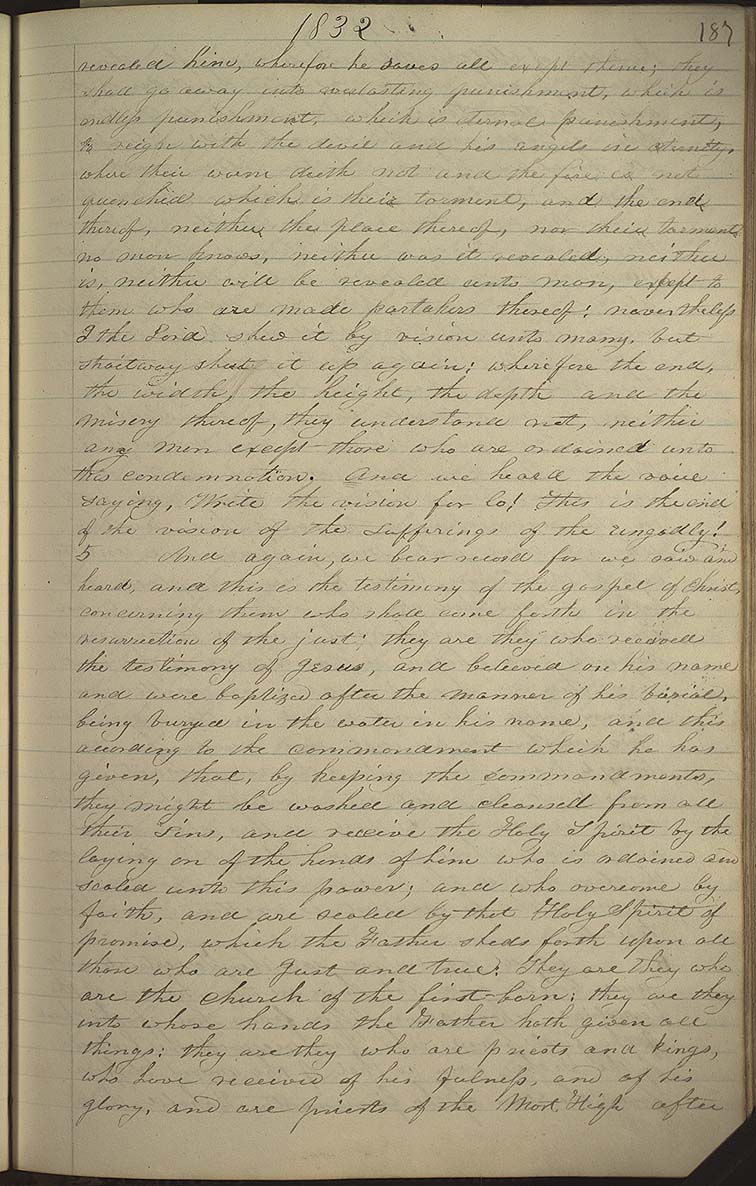 1832
187
revealed him, wherefore he saves all except them; they
shall go away into everlasting punishment, which is
endless punishment, which is eternal punishment,
to reign with the devil and his angels in eternity,
where their worm dieth not and the fire is not
quenched which is their torment, and the end
thereof, neither the place thereof, nor their torment
no man knows, neither was it revealed, neither
is, neither will be revealed unto man, except to
them who are made partakers thereof: nevertheless
I the Lord shew it by vision unto many, but
straitway shut it up again; wherefore the end,
the width, the height, the depth and the
misery thereof, they understand not, neither
any man except those who are ordained unto
this condemnation. And we heard the voice
saying, Write the vision for lo! This is the end
of the vision of the sufferings of the ungodly!
5 And again, we bear record for we saw and
heard, and this is the testimony of the gospel of Christ,
concerning them who shall come forth in the
resurrection of the just; they are they who received
the testimony of Jesus, and believed on his name
and were baptized after the manner of his burial,
being buryed in the water in his name, and this
according to the commandment which he has
given, that, by keeping the commandments,
they might be washed and cleansed from all
their sins, and receive the Holy Spirit by the
laying on of the hands of him who is ordained and
sealed unto this power; and who overcome by
faith, and are sealed by that Holy Spirit of
promise, which the Father sheds forth upon all
those who are just and true: They are they who
are the church of the first-born; they are they
into whose hands the Father hath given all
things: they are they who are priests and kings,
who have received of his fulness, and of his
glory, and are priests of the Most High after